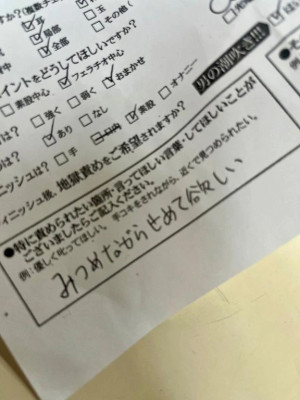 すか?(複数チ
☑耳
☑局部 □玉
☑全部 □その他く
イントをどうしてほしいですか?
□素股中心 ☑フェラチオ中心 ☑おまかせ
□強く □弱く
は? ☑あり □なし
ニッシュは? □手 ☑素股 □オナニー
男の潮吹き!!!
ィニッシュ後、地獄責めをご希望されますか?
●特に責められたい箇所・言ってほしい言葉・してほしいことが
ございましたらご記入ください。
例:優しく叱ってほしい。手コキをされながら、近くで見つめられたい。
みつめながらせめて欲しい